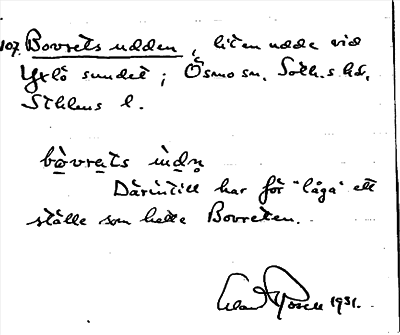 107. Bovrets udden, liten udde vid
Yxlö sundet; Ösmo sn. Soth.s hd.
Sthlms l.
bòvrats ùdn̥
Därintill har för "låga" ett
ställe som hette Bovreten.
Rosell 1931.